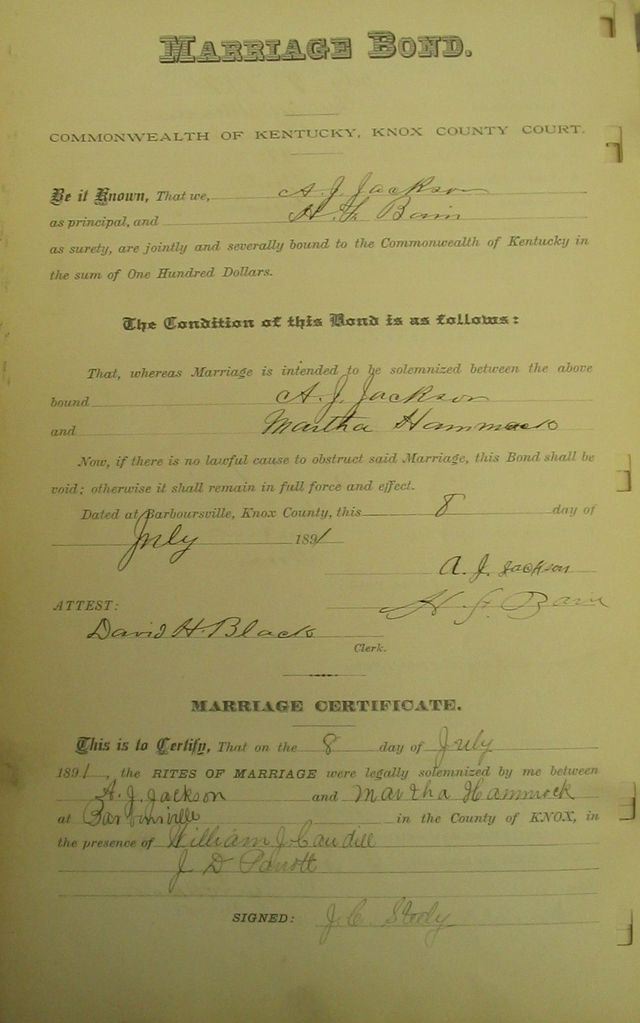 MARRIAGE BOND.
COMMONWEALTH OF KENTUCKY, KNOX COUNTY COURT.
Be it Known, That we, A. J. Jackson
as principal, and H. F. Bain
as surety, are jointly and severally bound to the Commonwealth of Kentucky in
the sum of One Hundred Dollars.
The Condition of this Bond is as follows:
That, whereas Marriage is intended to be solemnized between the above
bound A. J. Jackson
and Martha Hammack
Now, if there is no lawful cause to obstruct said Marriage, this Bond shall be
void; otherwise it shall remain in full force and effect.
Dated at Barboursville, Knox County, this 8 day of
July 1891
A. J. Jackson
ATTEST: H. F. Bain
David H. Black
Clerk.
MARRIAGE CERTIFICATE.
This is to Certify, That on the 8 day of July
1891, the RITES OF MARRIAGE were legally solemnized by me between
A. J. Jackson and Martha Hammock
at in the County of KNOX, in
the presence of William J. Caudill
J D Parrott
SIGNED: J. C.